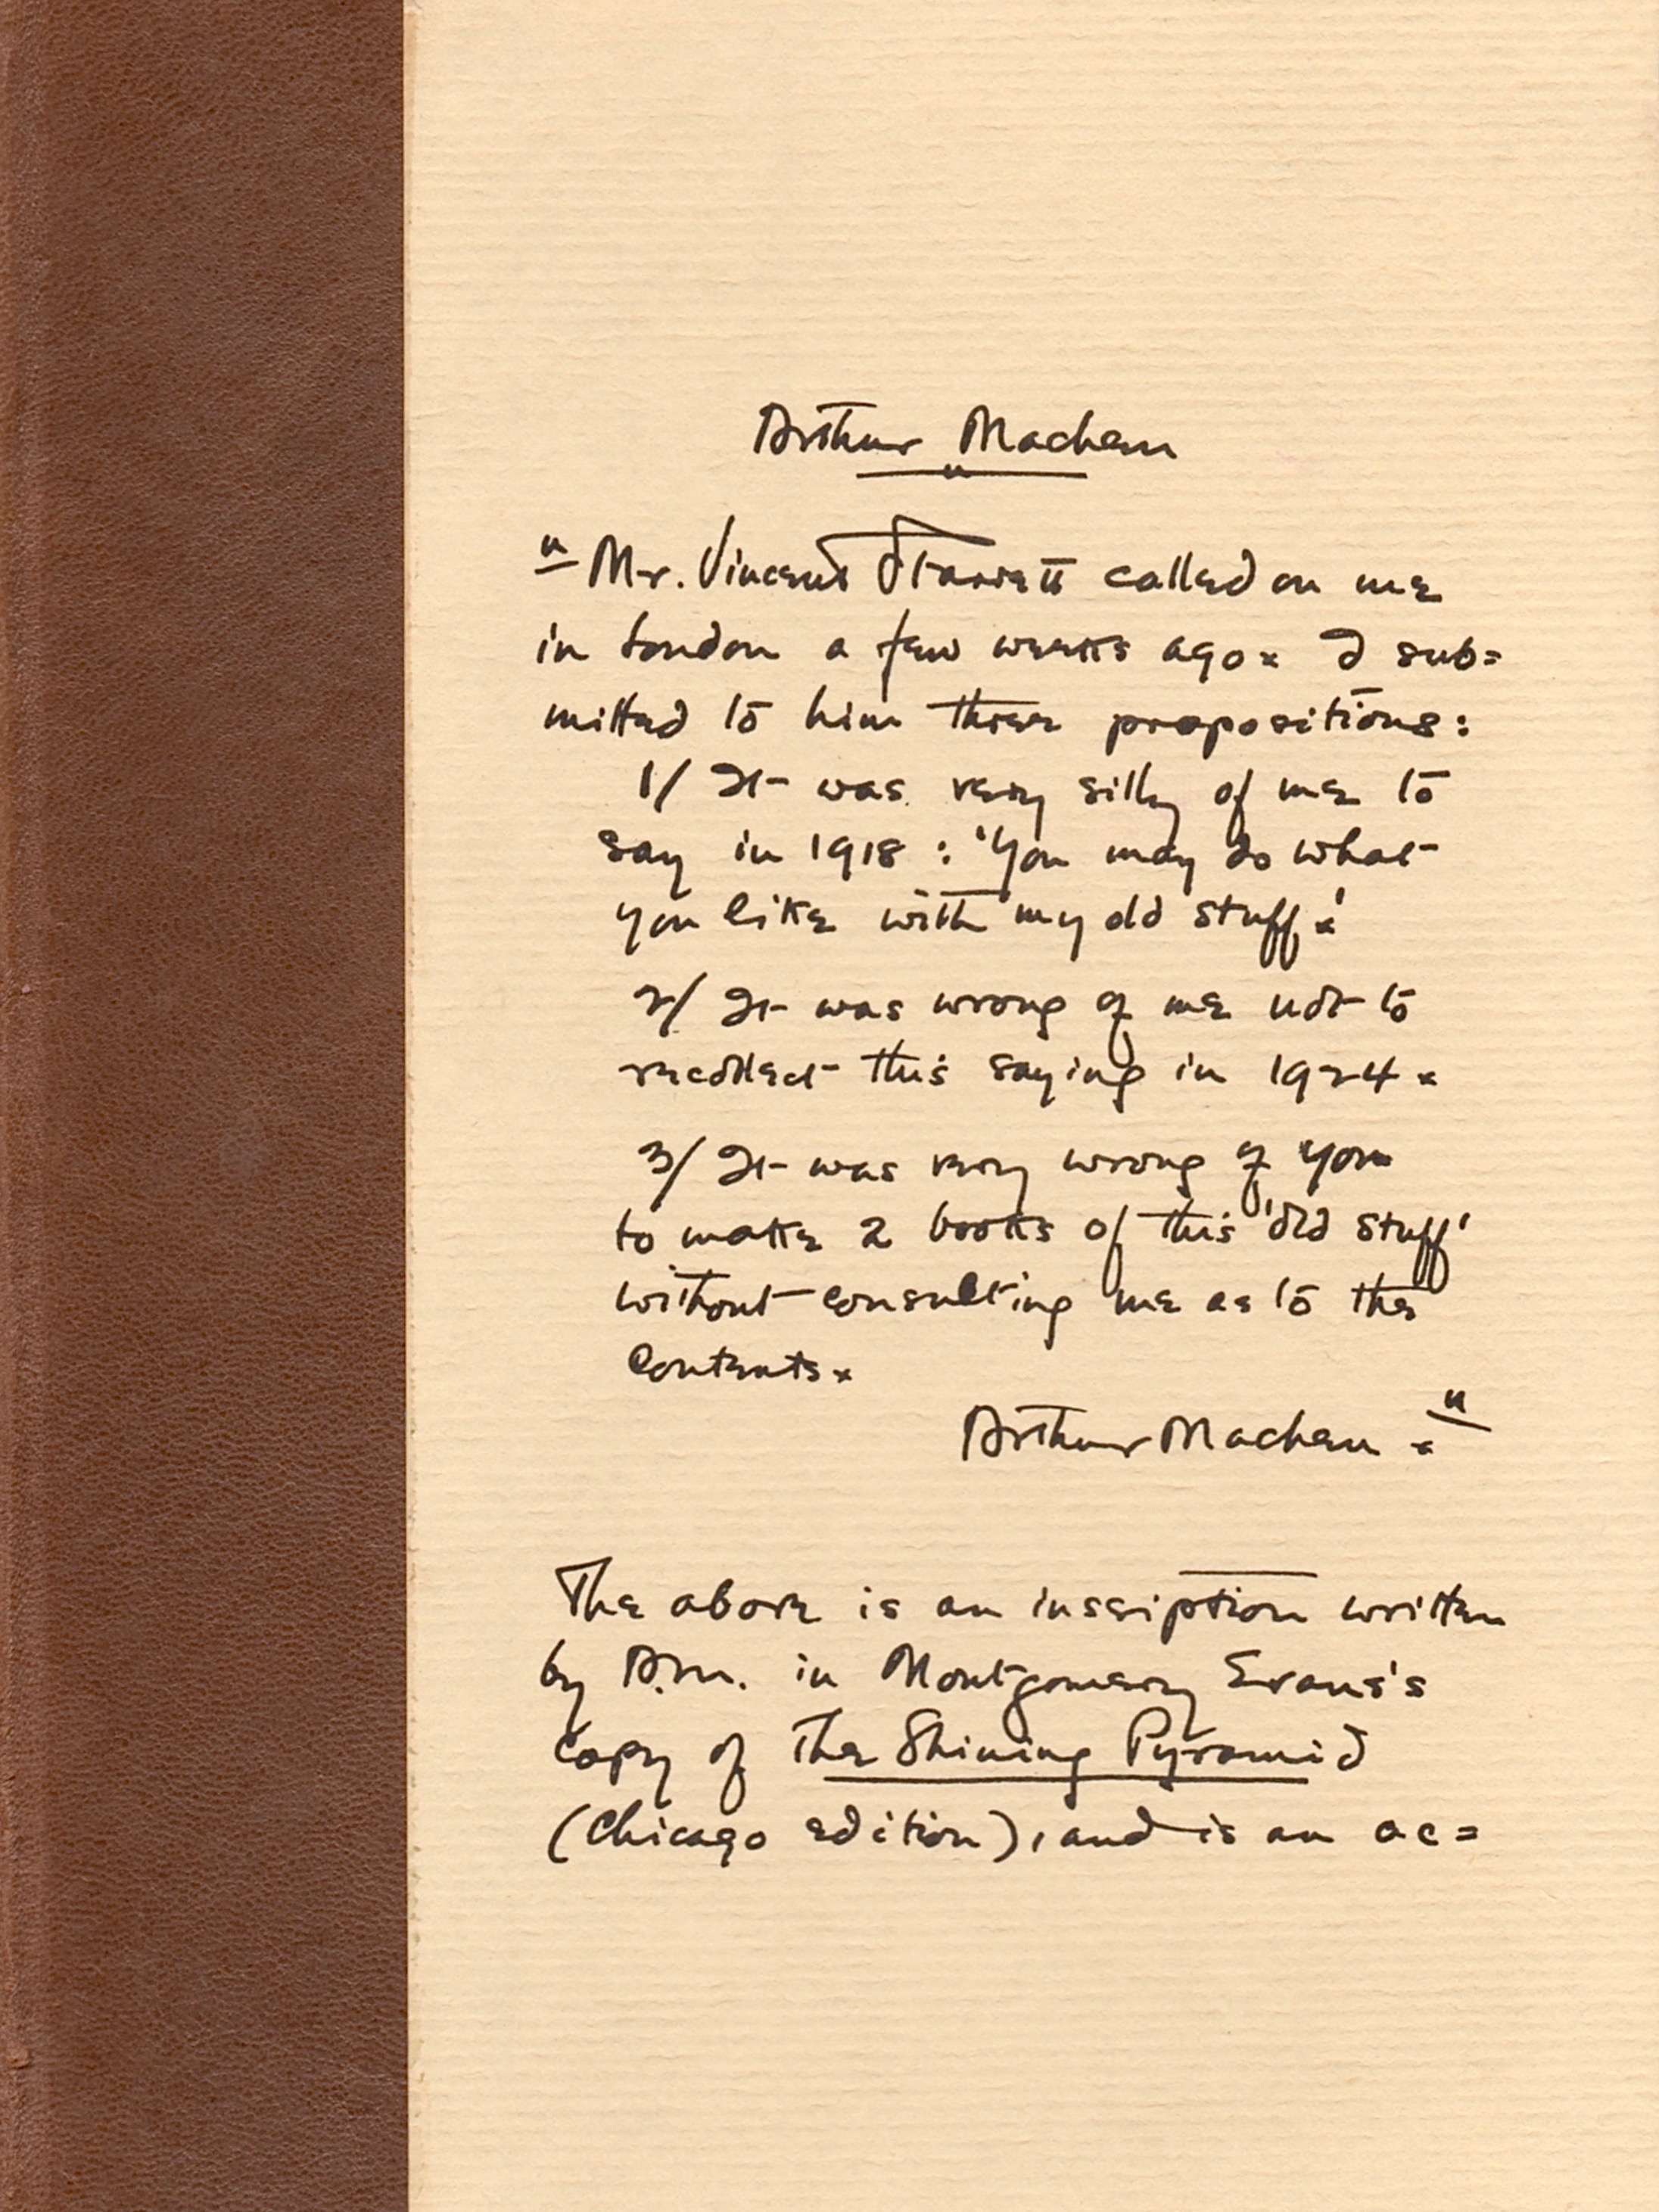 Arthur Machen
"Mr. Vincent Starrett called on me
in London a few weeks ago. I sub=
mitted to him three propositions:
1/ It was very silly of me to
say in 1918: 'You may do what
you like with my old stuff.'
2/ It was wrong of me not to
recollect this saying in 1924.
3/ It was very wrong of you
to make 2 books of this 'old stuff'
without consulting me as to the
contents.
Arthur Machen."
The above is an inscription written
by A.M. in Montgomery Evans's
copy of The Shining Pyramid
(Chicago edition), and is an ac=